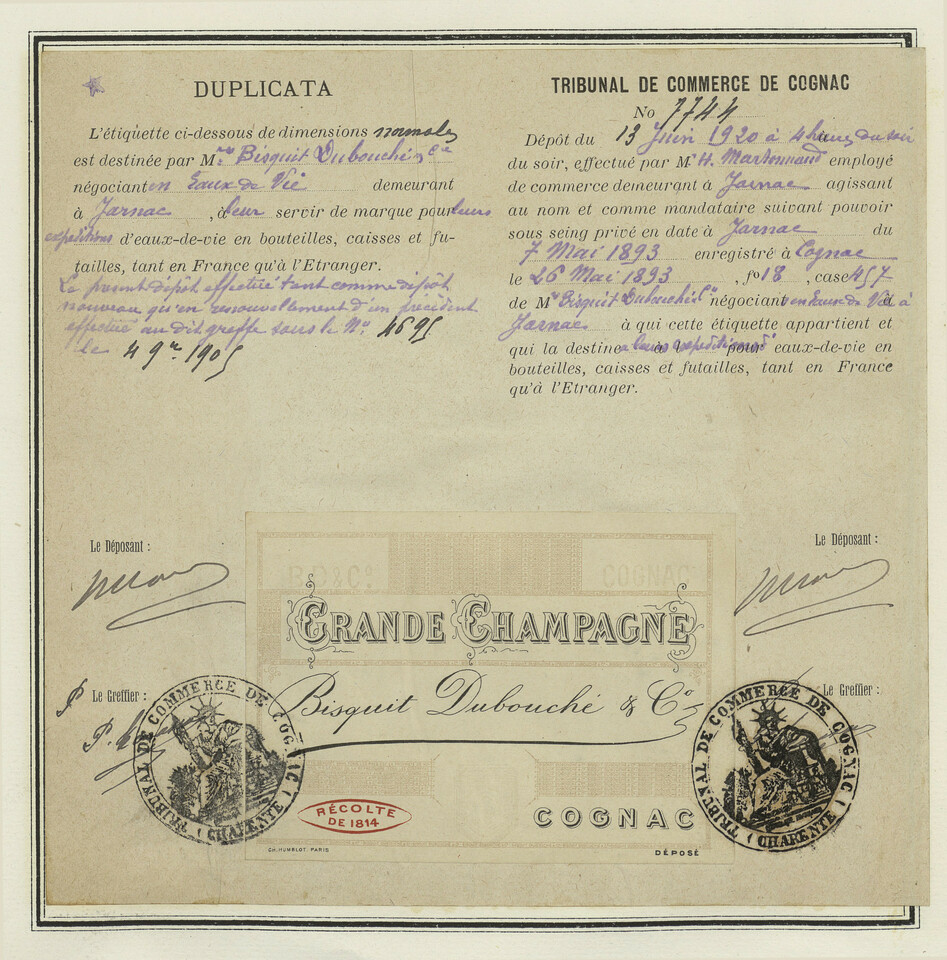 DUPLICATA
L'étiquette ci-dessous de dimensions normales
est destinée par Mrs Bisquit Dubouché & Cie
négociant en Eaux de Vie demeurant
à Jarnac, à leur servir de marque pour leurs
expéditions d'eaux-de-vie en bouteilles, caisses et fu-
tailles, tant en France qu'à l'Etranger.
Le présent dépôt effectué tant comme dépôt
nouveau qu'en renouvellement d'un précédent
effectué au dit greffe sous le No. 4695
le 4 9re 1905
TRIBUNAL DE COMMERCE DE COGNAC
No 7744
Dépôt du 13 Juin 1920 à 4 heures du soir
du soir, effectué par Mr H. employé
de commerce demeurant à Jarnac agissant
au nom et comme mandataire suivant pouvoir
sous seing privé en date à Jarnac du
7 Mai 1893 enregistré à Cognac
le 26 Mai 1893, fo 18, case 457
de Mrs Bisquit Dubouché & Cie négociant en Eaux de Vie à
Jarnac à qui cette étiquette appartient et
qui la destine à leurs expéditions d' eaux-de-vie en
bouteilles, caisses et futailles, tant en France
qu'à l'Etranger.
Le Déposant :
Le Déposant :
B.D & Co
COGNAC
GRANDE CHAMPAGNE
Bisquit Dubouché & Co
P Le Greffier :
Le Greffier :
TRIBUNAL DE COMMERCE DE COGNAC (CHARENTE)
TRIBUNAL DE COMMERCE DE COGNAC (CHARENTE)
RÉCOLTE
DE 1814
COGNAC
CH. HUMBLOT. PARIS
DÉPOSÉ